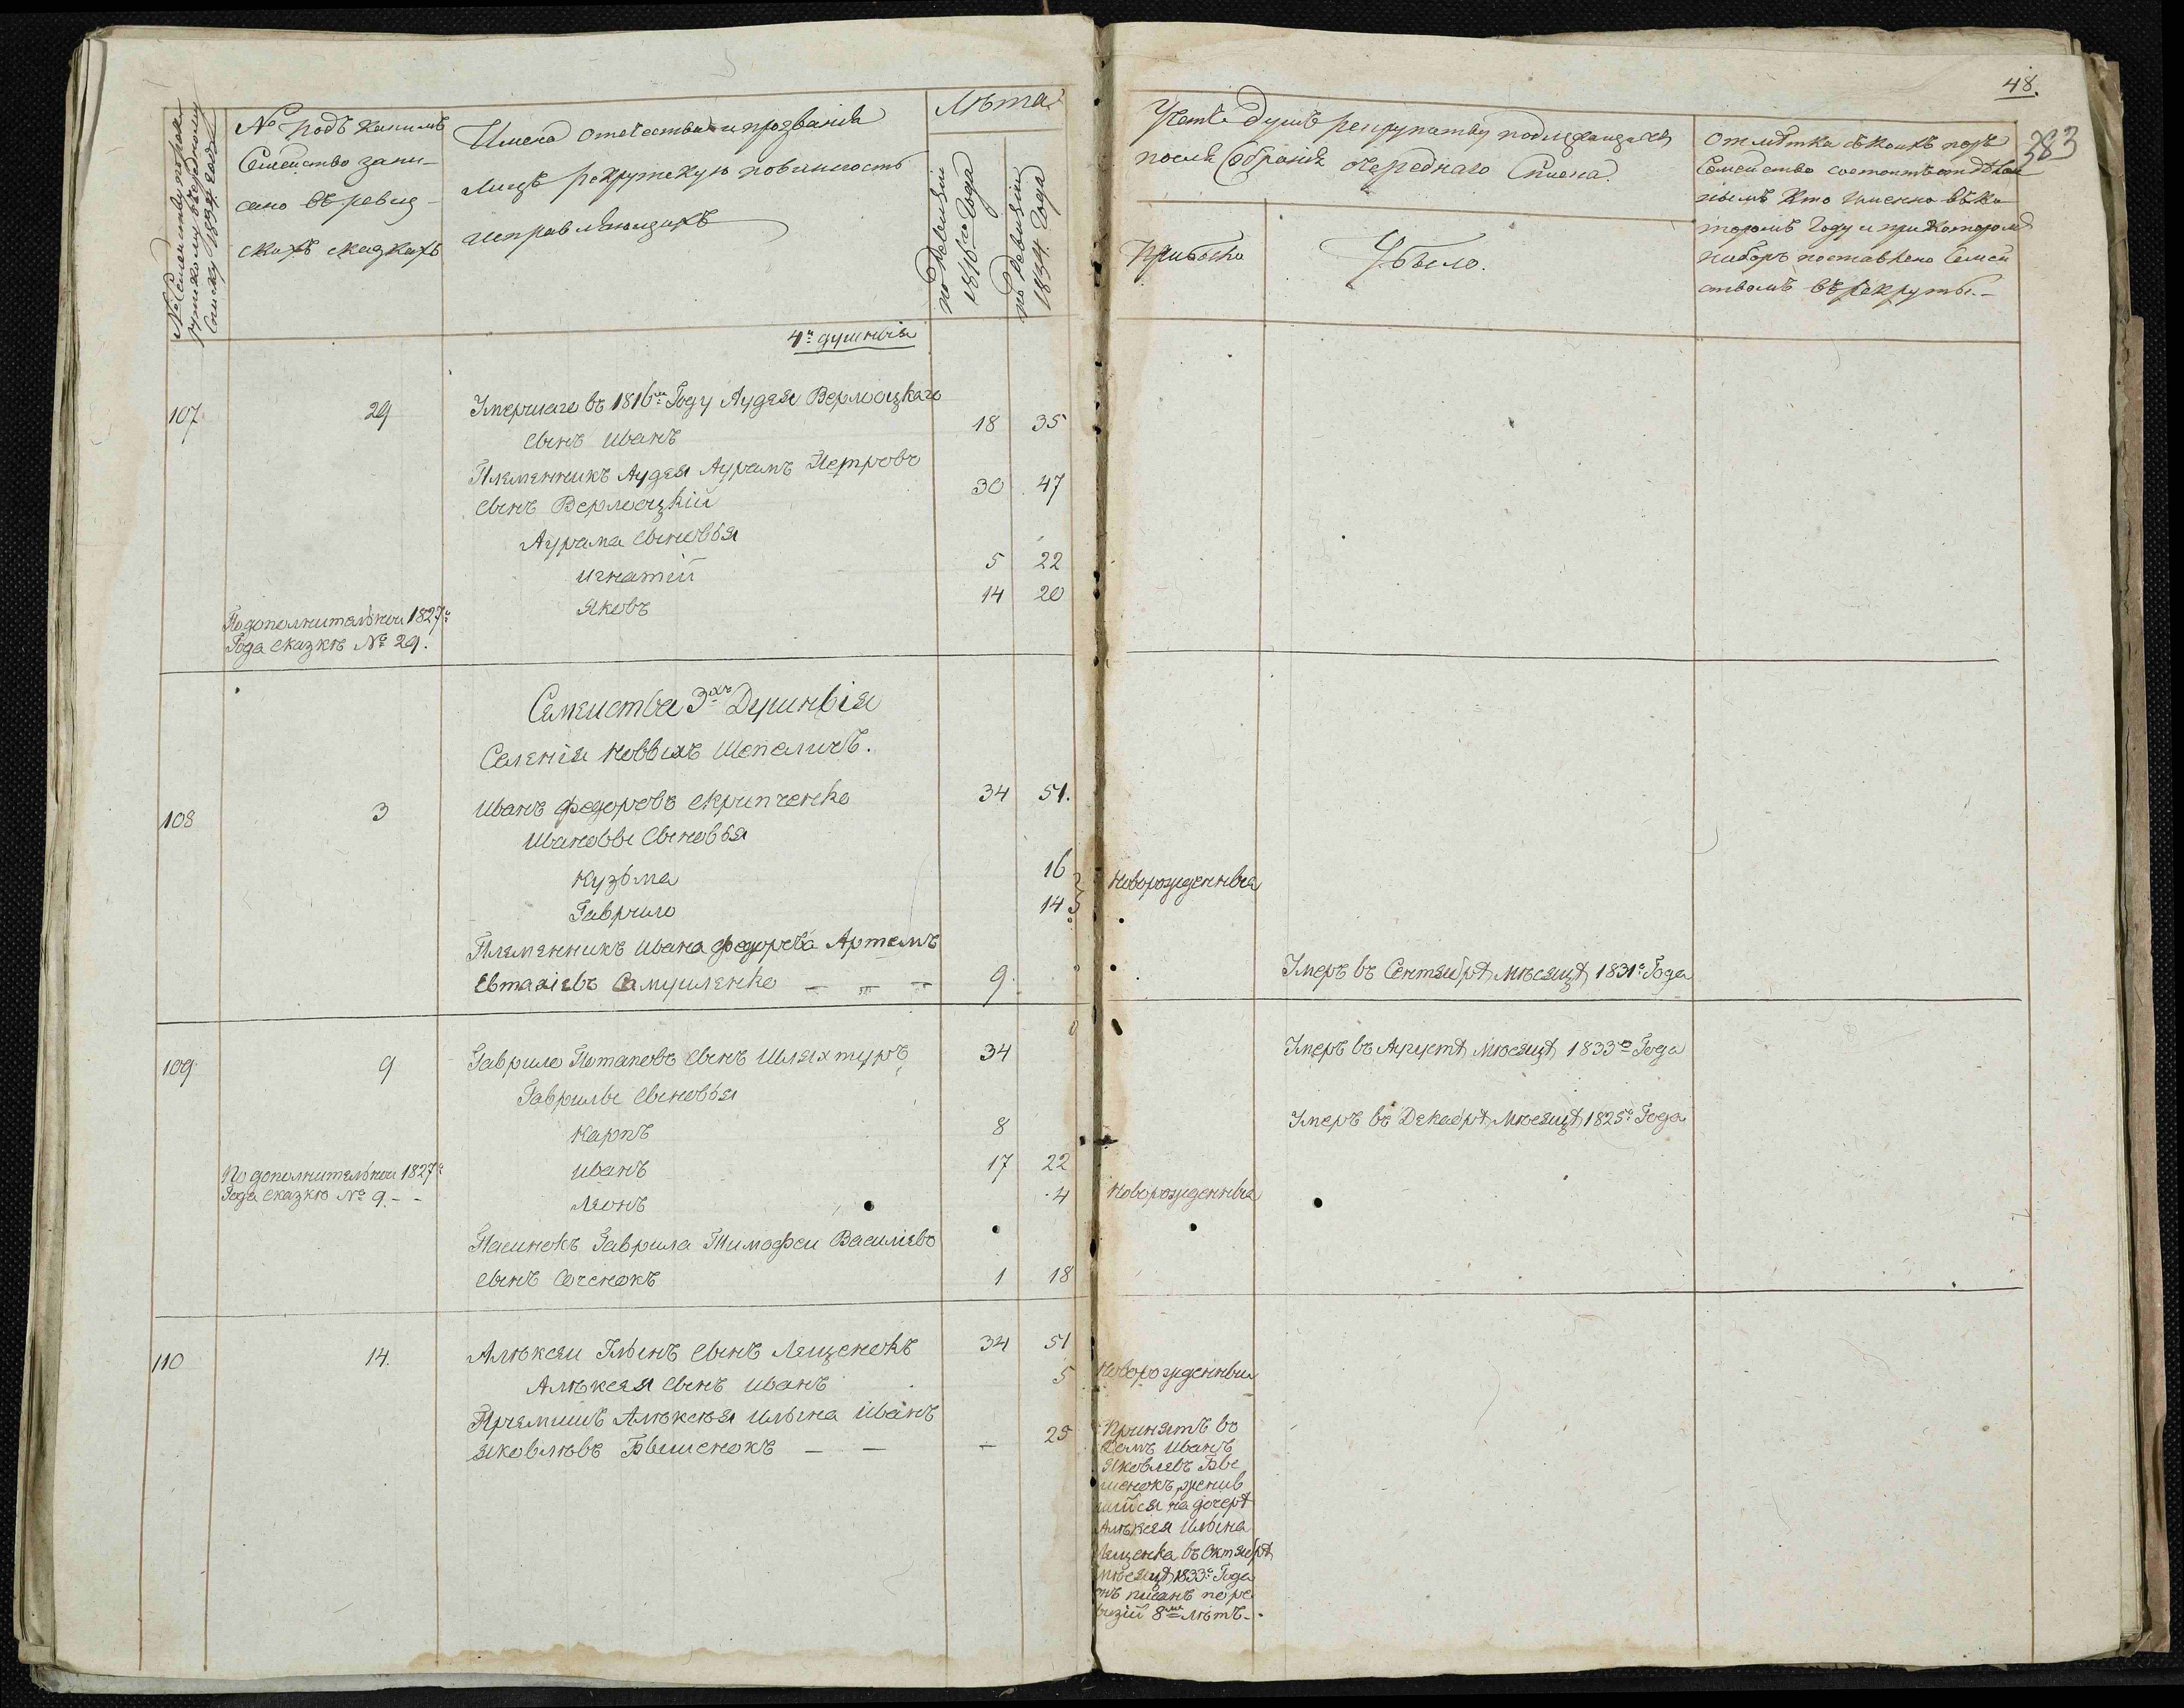 48.
383
№ Семейству по рек
рутскому очередному
Списку 1834 года
№ подъ каимъ
Семейство запи-
сано въ ревиз-
скихъ сказкахъ
Имена отечества и прозванія
лицъ рекрутскую повинность
исправляющихъ
Лѣта
по Ревизіи
1816го Года
по Ревизіи
1834. Года
Учетъ душъ рекрутству подлежащихъ
послѣ Собранія очереднаго Списка.
Прибыло
Убыло.
Отмѣтка съ коихъ поръ
Семейство состоитъ отдѣль
нымъ Кто Именно въ ко
торомъ Году и при которомъ
наборѣ поставлено Семей
ствомъ въ рекруты.-
4ъ душныя
107. 29 Умершаго въ 1816мъ Году Аудея Вермоцкаго
сынъ Иванъ 18 35
Племянникъ Аудея Аурамъ Петровъ
сынъ Вермоцкій 30 47
Аурама сыновья
Игнатій 5 22
Яковъ 14 20
По дополнительной 1827а
Года сказкѣ № 29.
Семейства 3хъ Душныя
Селенія Новыхъ Шепаличъ.
108 3 Иванъ Федоровъ Скрипченко 34 51.
Ивановы сыновья
Кузьма 16
Гаврило 14
Новорожденныя
Племянникъ Ивана Федорова Артемъ
Евтахіевъ Самуиленко — — — 9. Умеръ въ Сентябрѣ мѣсяцѣ 1831а Года
109 9 Гаврило Потаповъ сынъ Шляхтуръ 34 Умеръ въ Августѣ мѣсяцѣ 1833го Года
Гаврилы сыновья
Карпъ 8 Умеръ въ Декабрѣ мѣсяцѣ 1825а Года
Иванъ 17 22
По дополнительной 1827а
Года сказкѣ № 9.- -
Леонъ 4 Новорожденныя
Пасинокъ Гаврила Тимофеи Василіевъ
сынъ Соченокъ 1 18
110 14. Алѣксеи Ильинъ сынъ Лященокъ 34 51
Алѣксея сынъ Иванъ 5 Новорожденныи
Пріемышъ Алѣксѣя Ильина Иванъ
Яковлѣвъ Бышенокъ — — — 25
Принятъ въ
домъ Иванъ
Яковлевъ Бы
шенокъ, женив
шийся на дочерѣ
Алѣксея Ильина
Лященка въ Октябрѣ
мѣсяцѣ 1833а Года
онъ писанъ по ре
визіи 8ми лѣтъ-.